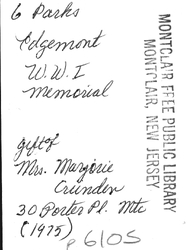 6 Parks
Edgemont
W.W.I
Memorial
gift of
Mrs. Marjorie
Crunden
30 Porter Pl. Mtc
(1975)
p6105
MONTCLAIR FREE PUBLIC LIBRARY
MONTCLAIR, NEW JERSEY